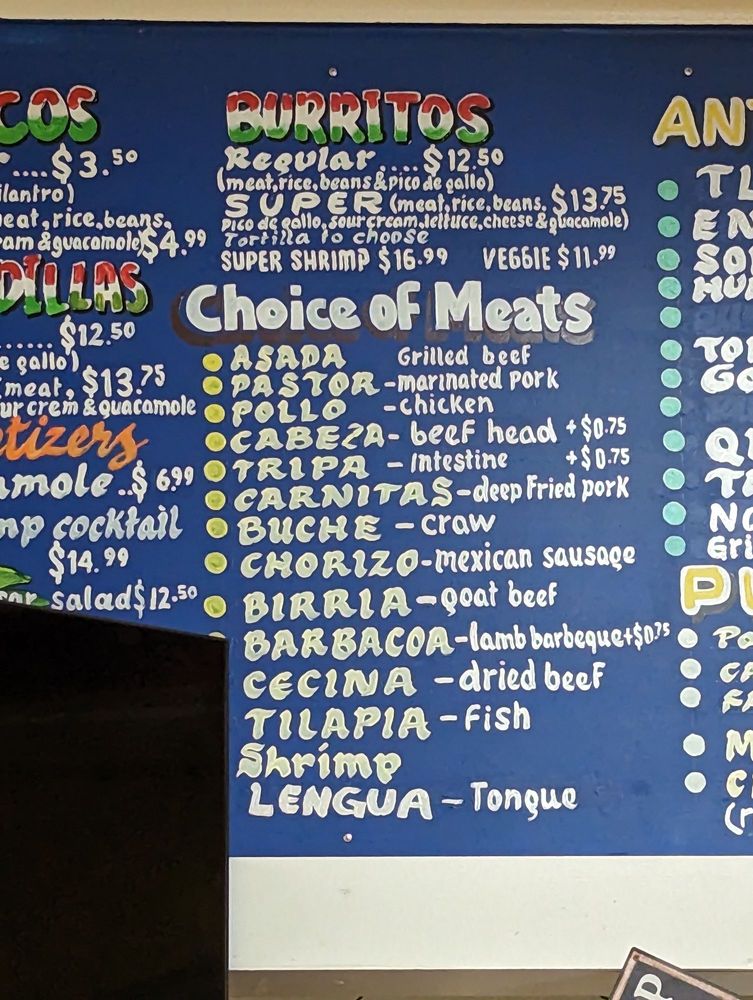 BURRITOS
Regular.... $12.50
(meat,rice,beans&pico de gallo)
SUPER (meat,rice,beans, $13.75
Pico de gallo,sourcream,lettuce,cheese&guacamole)
Tortilla to choose
SUPER SHRIMP $16.99 VEGGIE $11.99
Choice of Meats
ASADA Grilled beef
PASTOR-marinated pork
POLLO -chicken
CABEZA- beef head +$0.75
TRIPA - Intestine +$0.75
CARNITAS-deep fried pork
BUCHE - craw
CHORIZO-mexican sausage
BIRRIA-goat beef
BARBACOA-lamb barbeque+$0.75
CECINA -dried beef
TILAPIA - Fish
Shrimp
LENGUA - Tongue
....$3.50
rice,beans,
&guacamole)$4.99
...... $12.50
gallo)
(meat, $13.75
crem &guacamole
..$ 6.99
cocktail
$14.99
salad$12.50